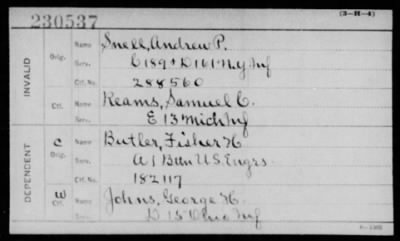 230537
(3-H-4)
INVALID
Orig.
Name Snell, Andrew P.
Serv. E 189 + D 161 N.Y. Inf
Ctf. No. 288560
Ctf.
Name Reams, Samuel C.
Serv. E 13 Mich Inf
DEPENDENT
C
Orig.
Name Butler, Fisher H
Serv. A 1 Battn U.S. Engrs.
Ctf. No. 182117
W
Ctf.
Name Johns, George H.
Serv. D 15 Ohio Inf